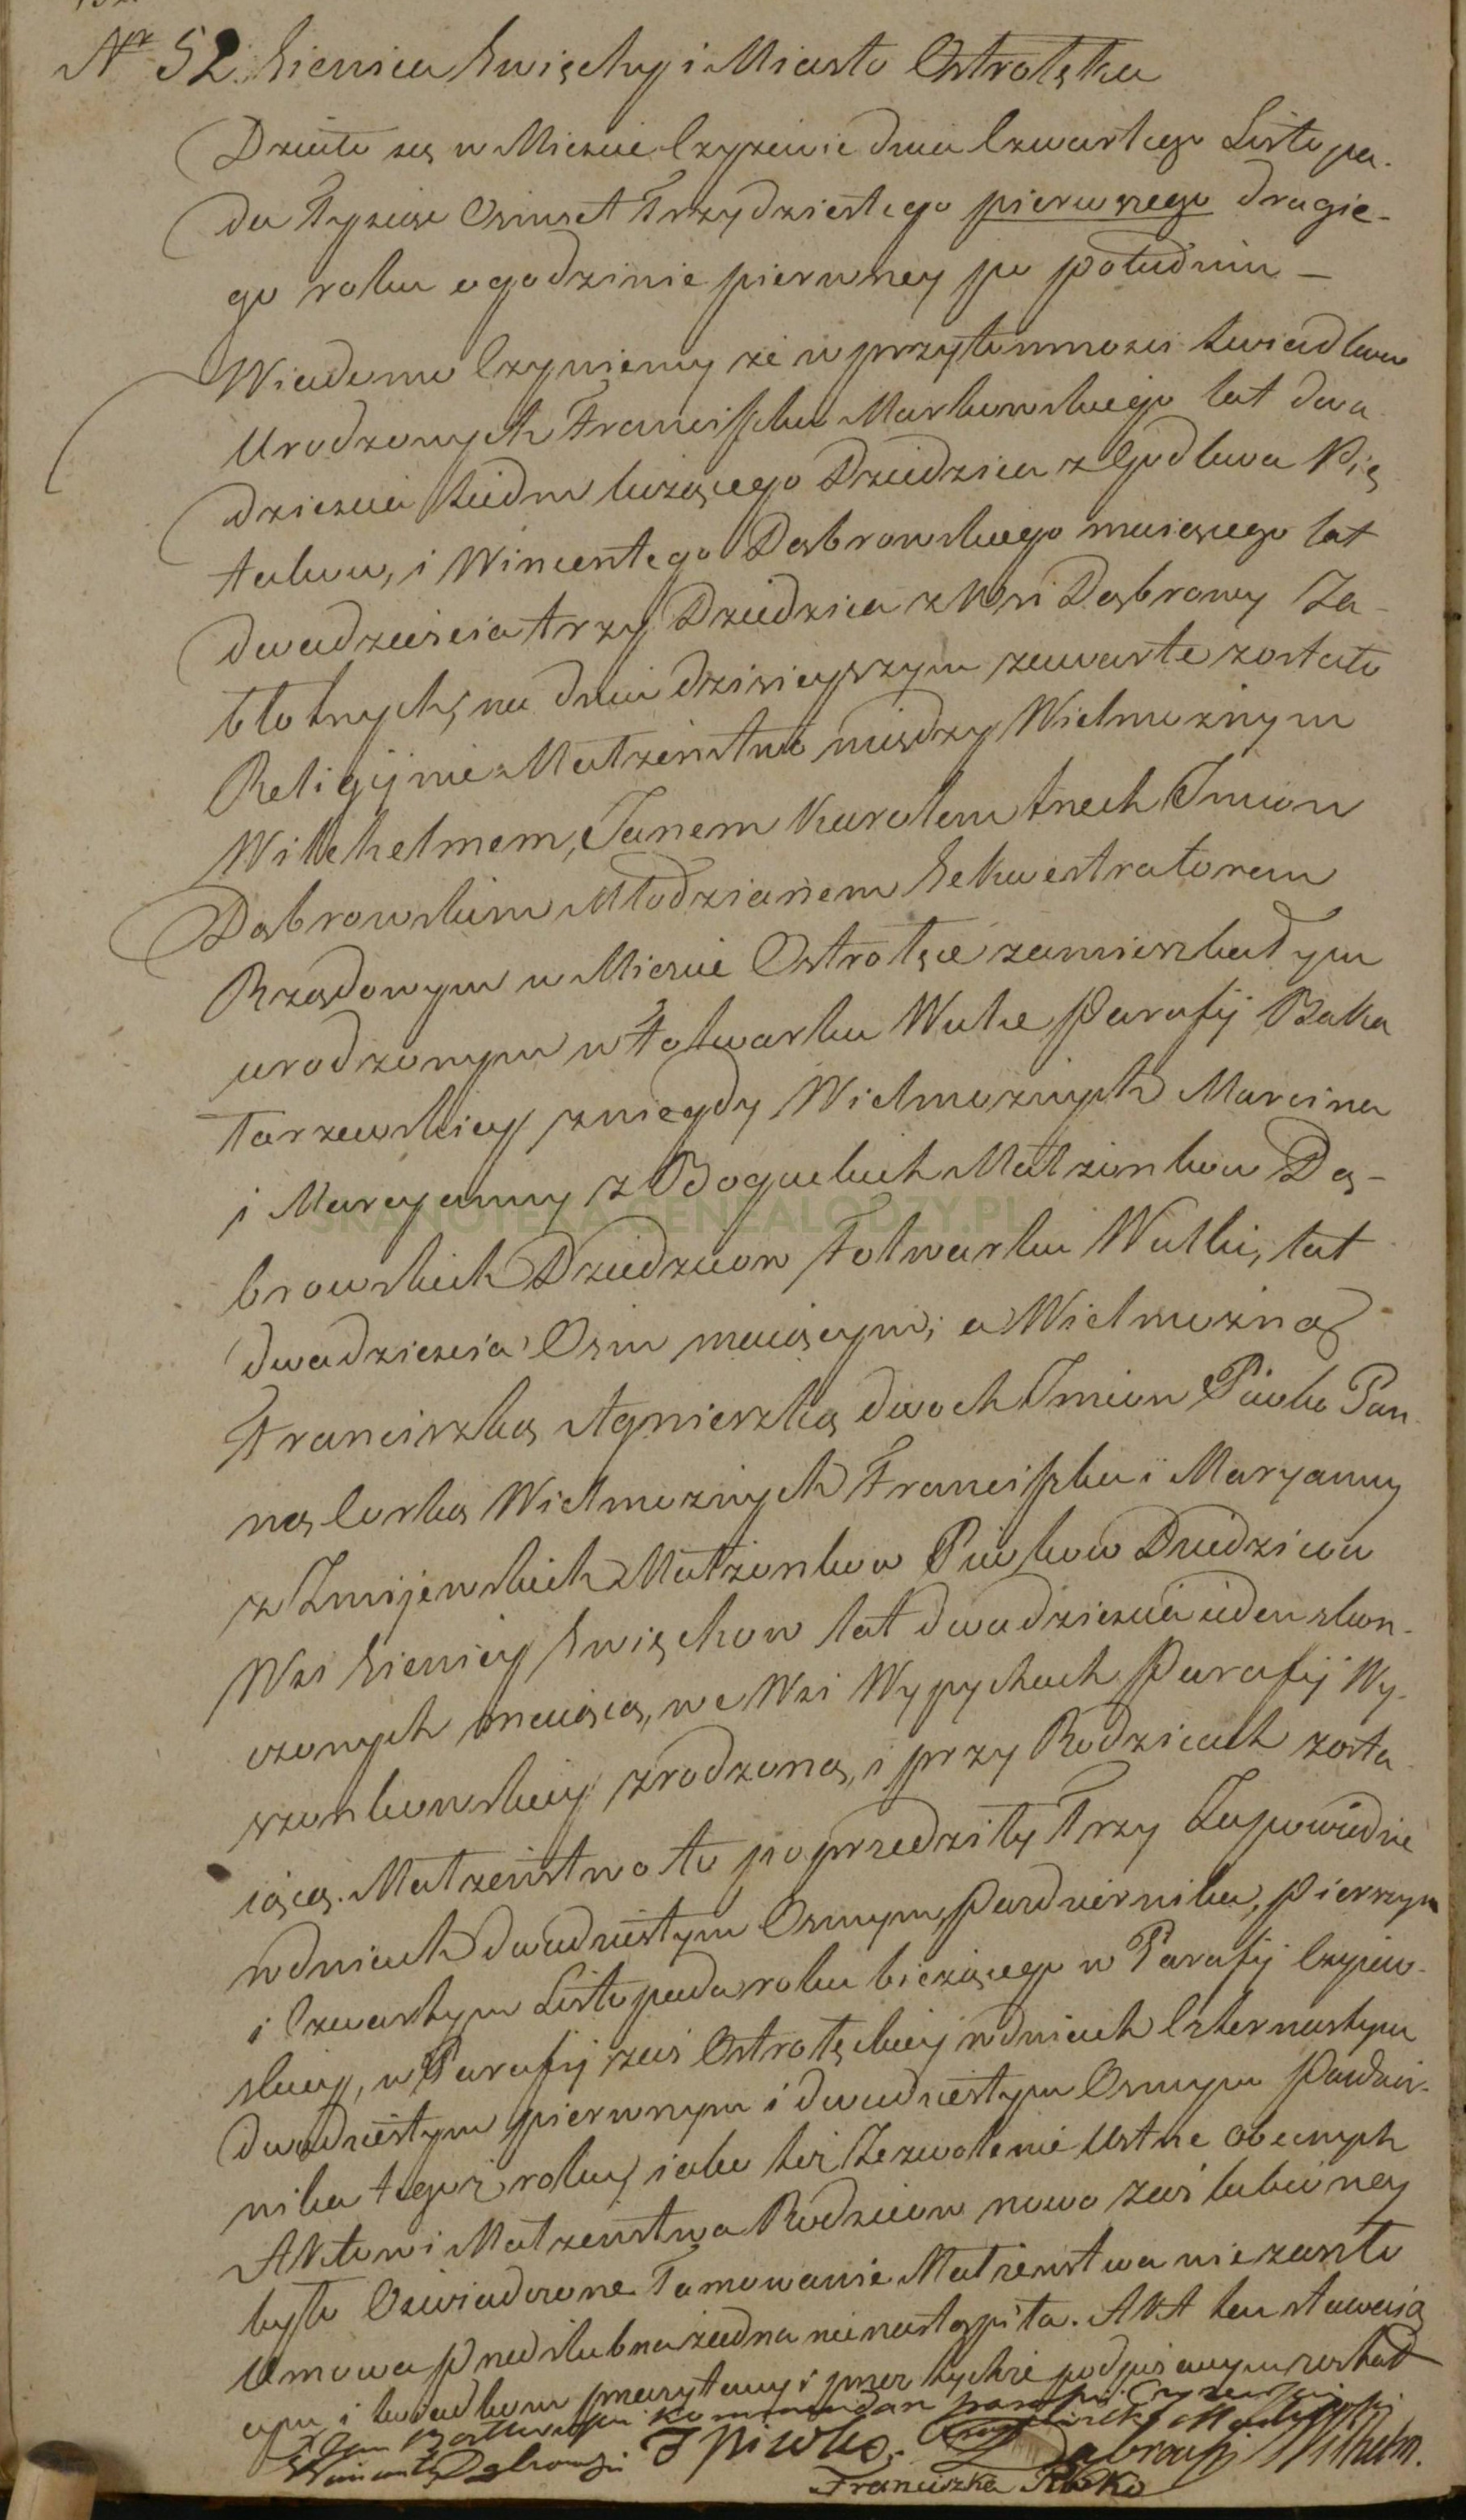 Nr 52. Sienica Święchy i Miasto Ostrołęka
Działo się w Mieście Czyżewie dnia Czwartego Listopa-
da Tysiąc Osmset Trzydziestego pierwszego drugie-
go roku o godzinie pierwszey po południu —
Wiadomo Czyniemy że w przytomności świadków
Urodzonych Franciszka Markowskiego lat dwa
dzieścia siedm liczącego Dziedzica z Godlewa Pię
taków, i Wincentego Dąbrowskiego maiącego lat
dwadzieścia trzy Dziedzica z Wsi Dąbrowy Za-
błotnych, na dniu dzisieyszym zawarte zostało
Religijnie Małżeństwo między Wielmożnym
Wilchelmem, Janem Karolem trzech Imion
Dąbrowskim Młodzianem Sekwestratorem
Rządowym w Mieście Ostrołęce zamieszkałym
urodzonym w Folwarku Wulce Parafij Baka
łarzewskiey z niegdy Wielmożnych Marcina
i Maryanny z Boguckich Małżonków Dą-
SKANOTEKA.GENEALODZY.PL
browskich Dziedziców Folwarku Wulki, lat
dwadzieścia Ośm maiącym; a Wielmożną
Franciszką Agnieszką dwoch Imion Piwko Pan
ną Corką Wielmożnych Franciszka i Maryanny
z Żmijewskich Małżonków Piwków Dziedziców
Wsi Sienicy Święchow lat dwadzieścia ieden skoń-
czonych maiącą, we Wsi Wypychach Parafij Wy-
szonkowskiey zrodzoną, i przy Rodzicach zosta
iącą. Małżeństwo to poprzedziły Trzy Zapowiedzie
w dniach dwudziestym Osmym Października, pierszym
i Czwartym Listopada roku bieżącego w Parafij Czyżew-
skiey, w Parafij zaś Ostrołęckiey w dniach Czternastym
dwudziestym pierwszym i dwudziestym Osmym Paździer-
nika tegoż roku, iako też Zezwolenie Ustne obecnych
Aktowi Małżeństwa Rodziców nowo zaślubioney
było Oświadczone Tamowanie Małżeństwa nie zaszło
Umowa Przedślubna żadna nie nastąpiła. Akt ten stawaią
cym i świadkom przeczytany i przez tychże podpisanym został
X Jan Kommendarz parafii Czyżewskiej
Wincenty Dąbrowski F Piwko. Dąbrowski Wilhelm.
Franciszka Piwko